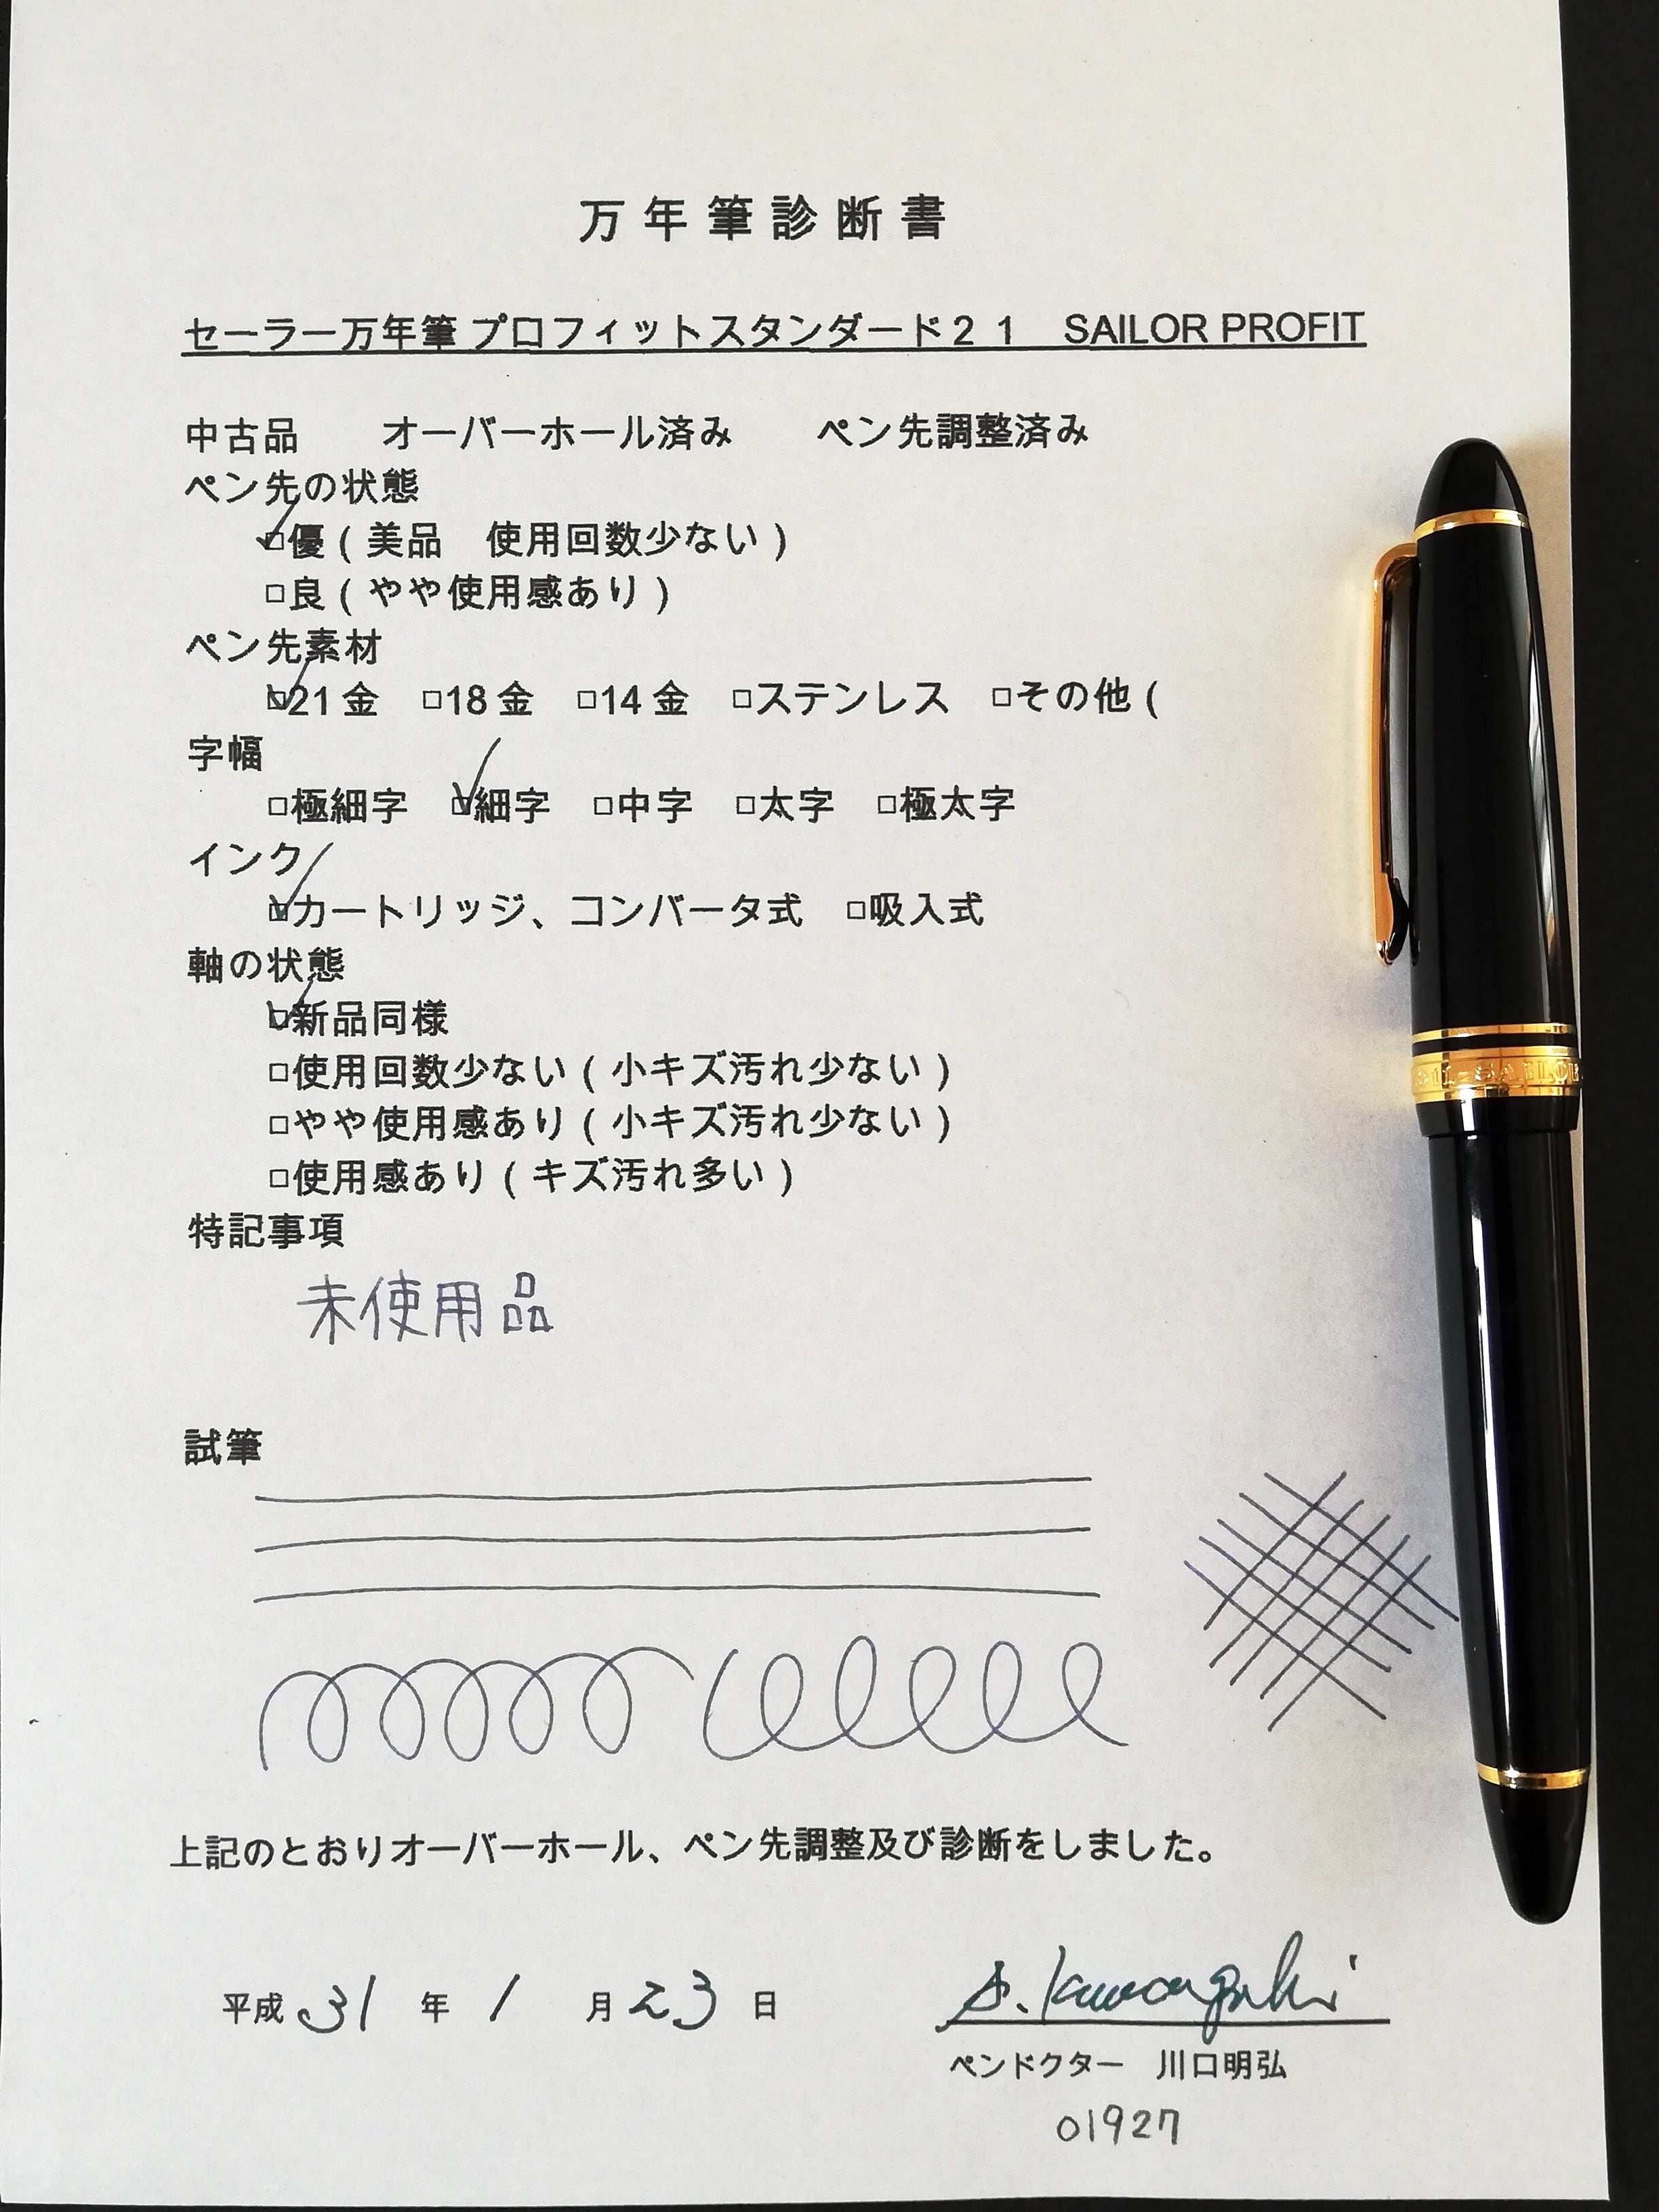 万年筆診断書
セーラー万年筆 プロフィットスタンダード２１　SAILOR PROFIT
中古品　　オーバーホール済み　　ペン先調整済み
ペン先の状態
☑優（美品　使用回数少ない）
□良（やや使用感あり）
ペン先素材
☑21金　□18金　□14金　□ステンレス　□その他（
字幅
□極細字　☑細字　□中字　□太字　□極太字
インク
☑カートリッジ、コンバータ式　□吸入式
軸の状態
☑新品同様
□使用回数少ない（小キズ汚れ少ない）
□やや使用感あり（小キズ汚れ少ない）
□使用感あり（キズ汚れ多い）
特記事項
未使用品
試筆
上記のとおりオーバーホール、ペン先調整及び診断をしました。
平成31年1月23日
A. Kawaguchi
ペンドクター　川口明弘
01927
SAILOR